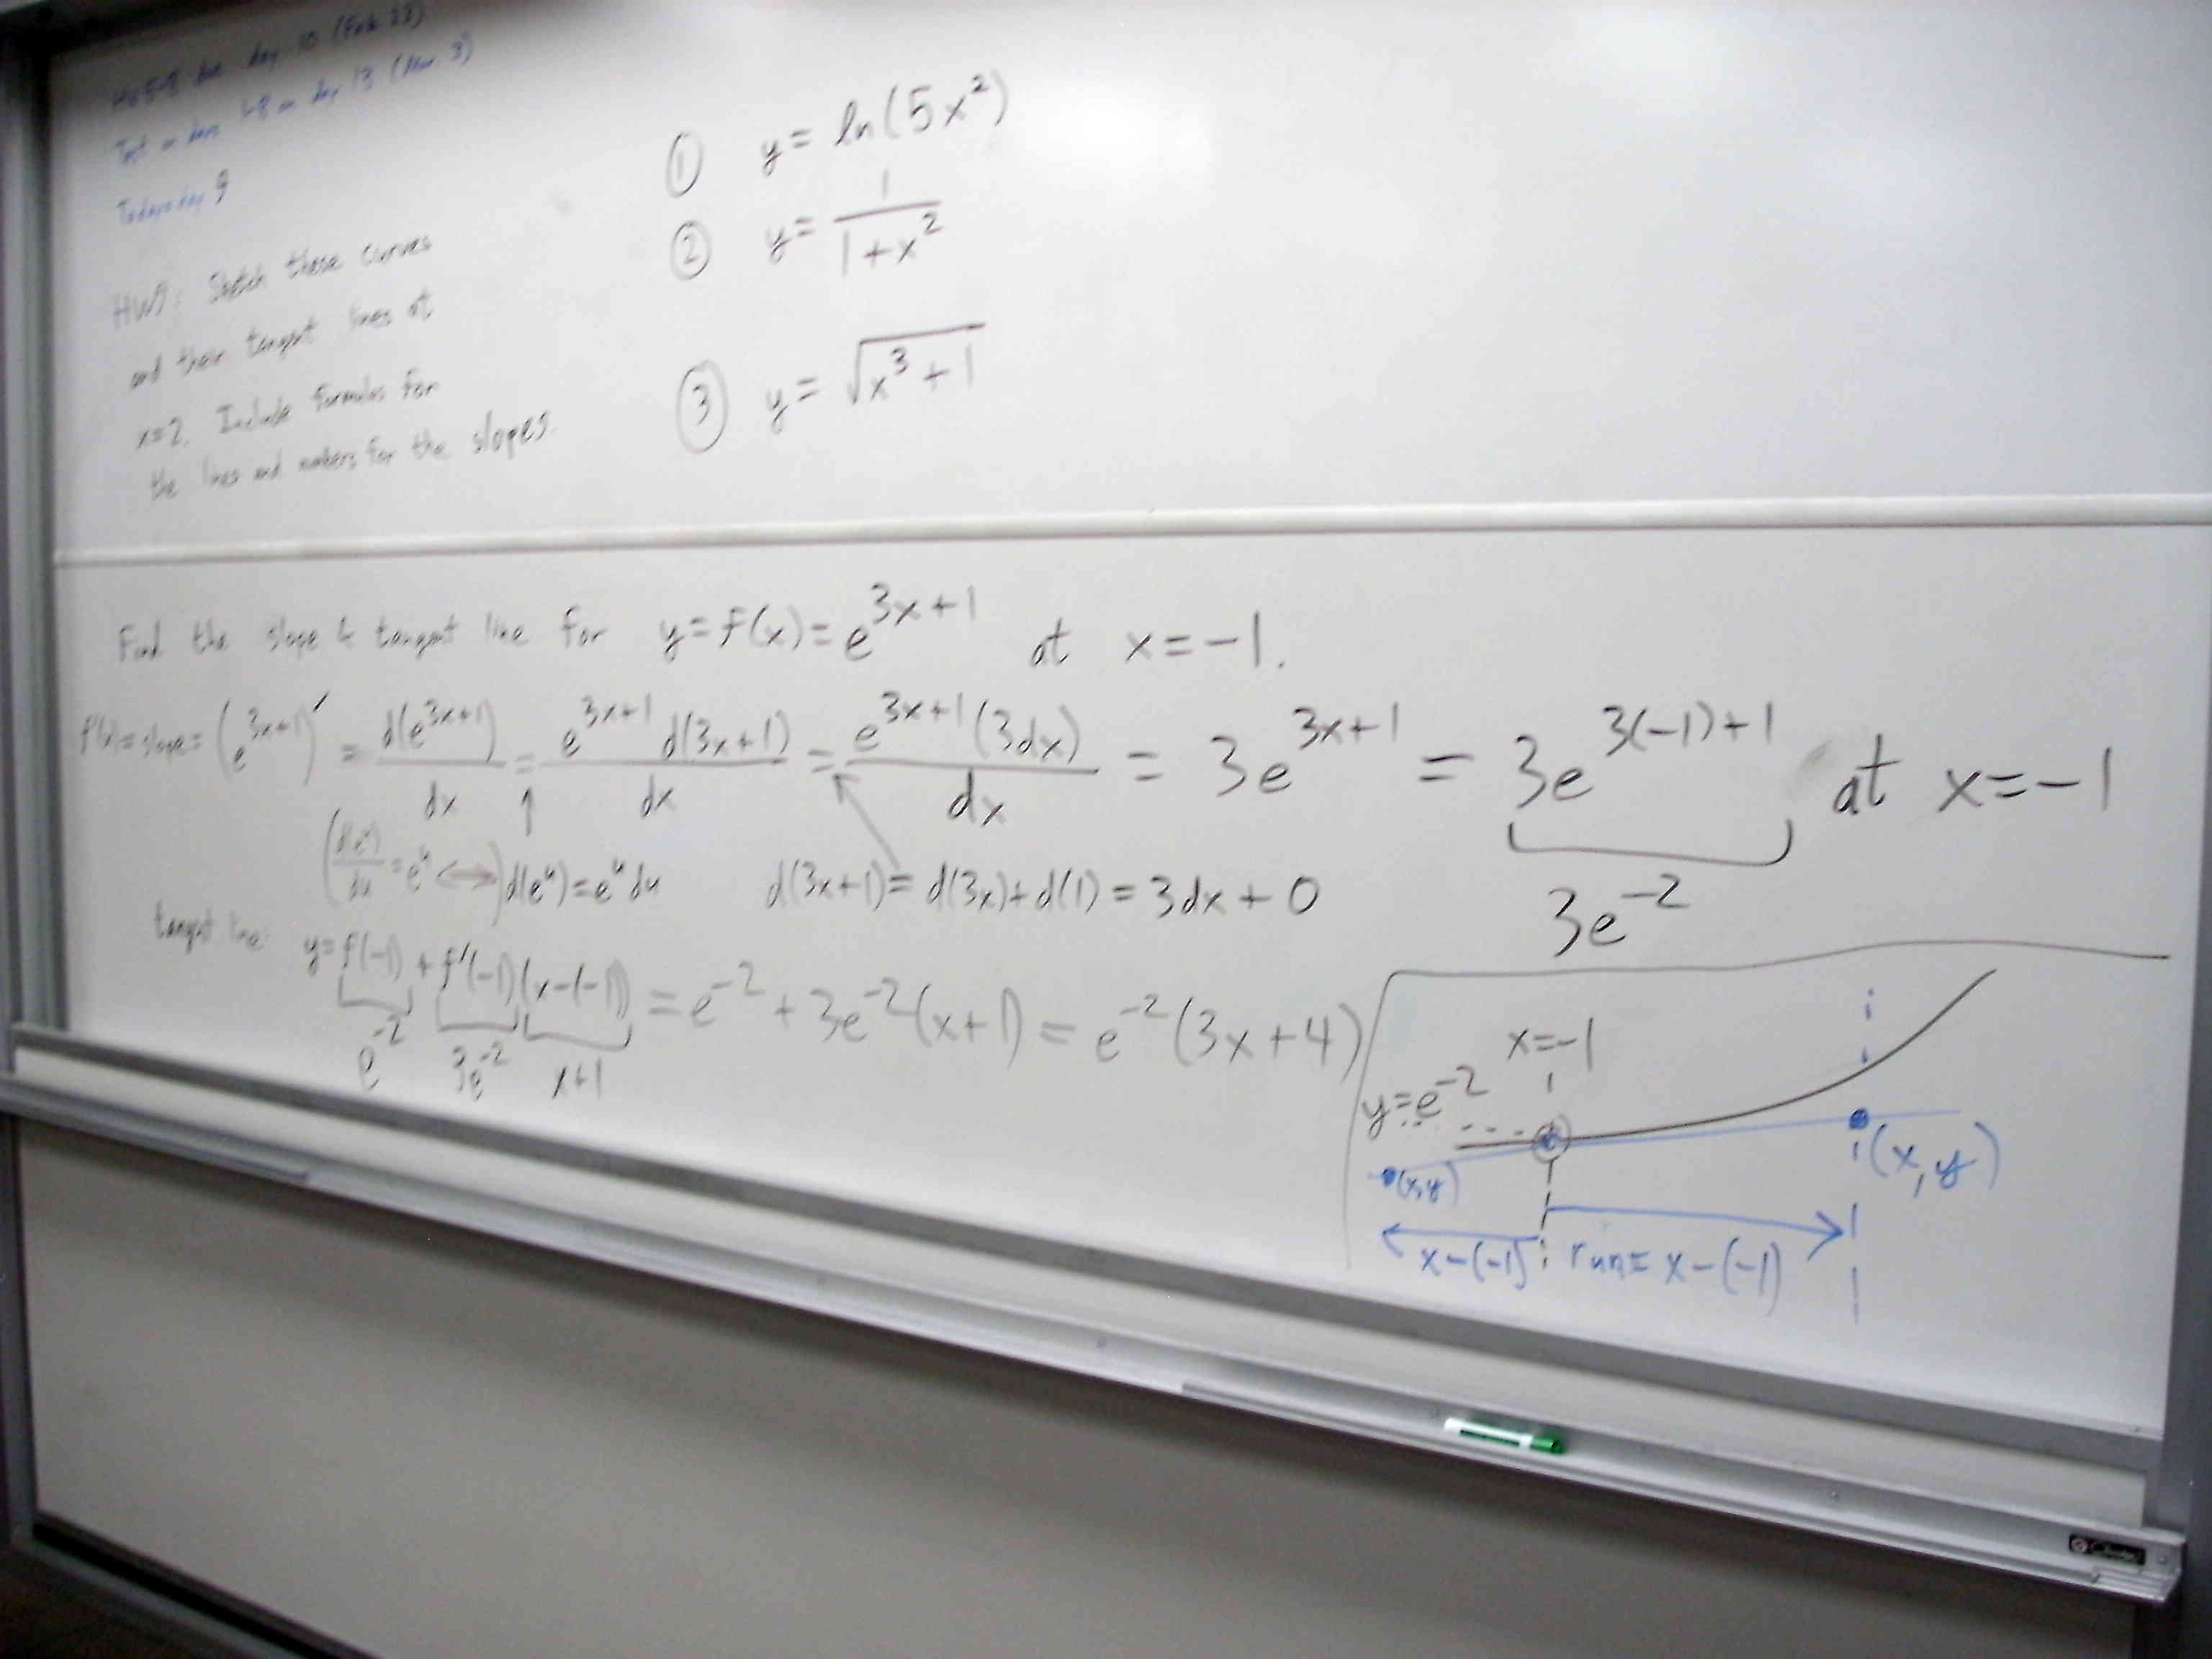 HW 5-8 due day 10 (Feb 23)
Test on days 1-8 on day 13 (Mar 3)
Today=day 9
HW9: Sketch these curves
and their tangent lines at
x=2. Include formulas for
the lines and numbers for the slopes.
① y = ln(5x²)
② y = 1/(1+x²)
③ y = √(x³+1)
Find the slope & tangent line for y=f(x)=e^(3x+1) at x=-1.
f'(x)=slope= (e^(3x+1))' = d(e^(3x+1))/dx = e^(3x+1) d(3x+1)/dx = e^(3x+1)(3dx)/dx = 3e^(3x+1) = 3e^(3(-1)+1) at x=-1
(d(e^u)/du = e^u ↔) d(e^u)=e^u du d(3x+1)= d(3x)+d(1) = 3dx + 0
3e^-2
tangent line: y=f(-1)+f'(-1)(x-(-1)) = e^-2 + 3e^-2(x+1) = e^-2(3x+4)
e^-2 3e^-2 x+1
x=-1
y=e^-2
(x,y) (x,y)
x-(-1) run= x-(-1)